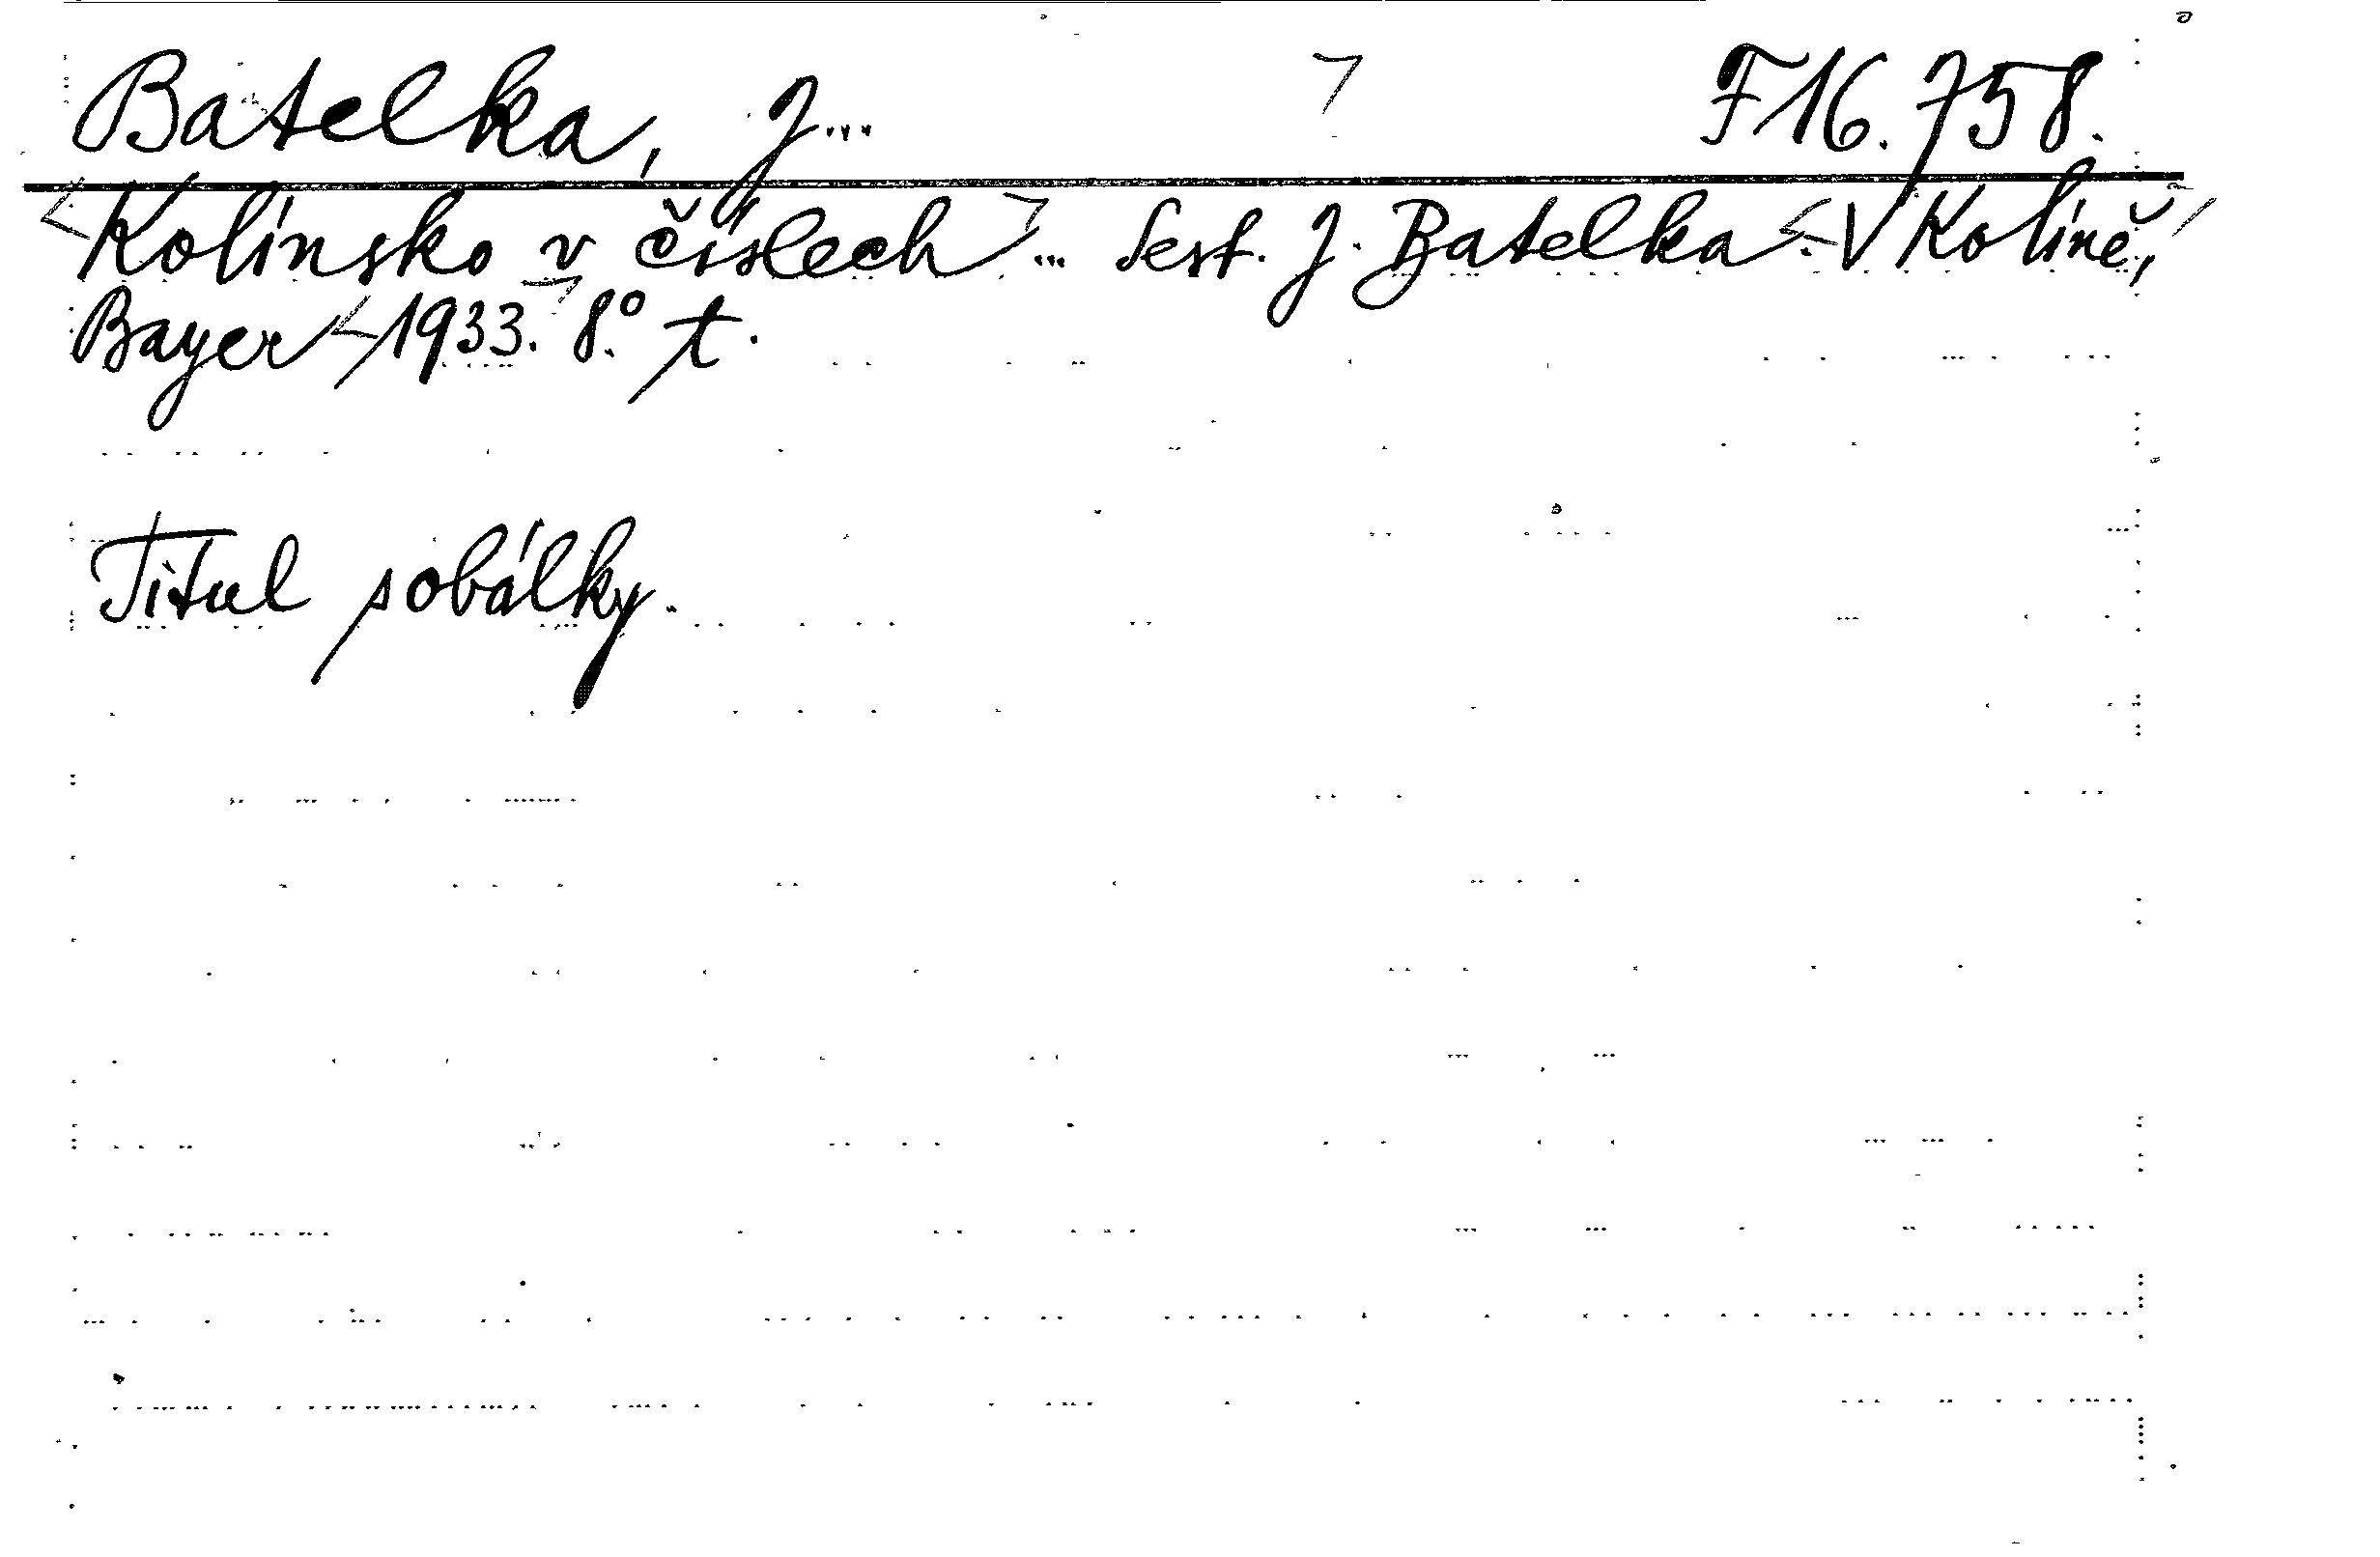 Batelka, J... F 16.758.
<Kolínsko v číslech> ... Sest. J. Batelka <- V Kolíně,
Bayer <- 1933. 8° t.
Titul s obálky.